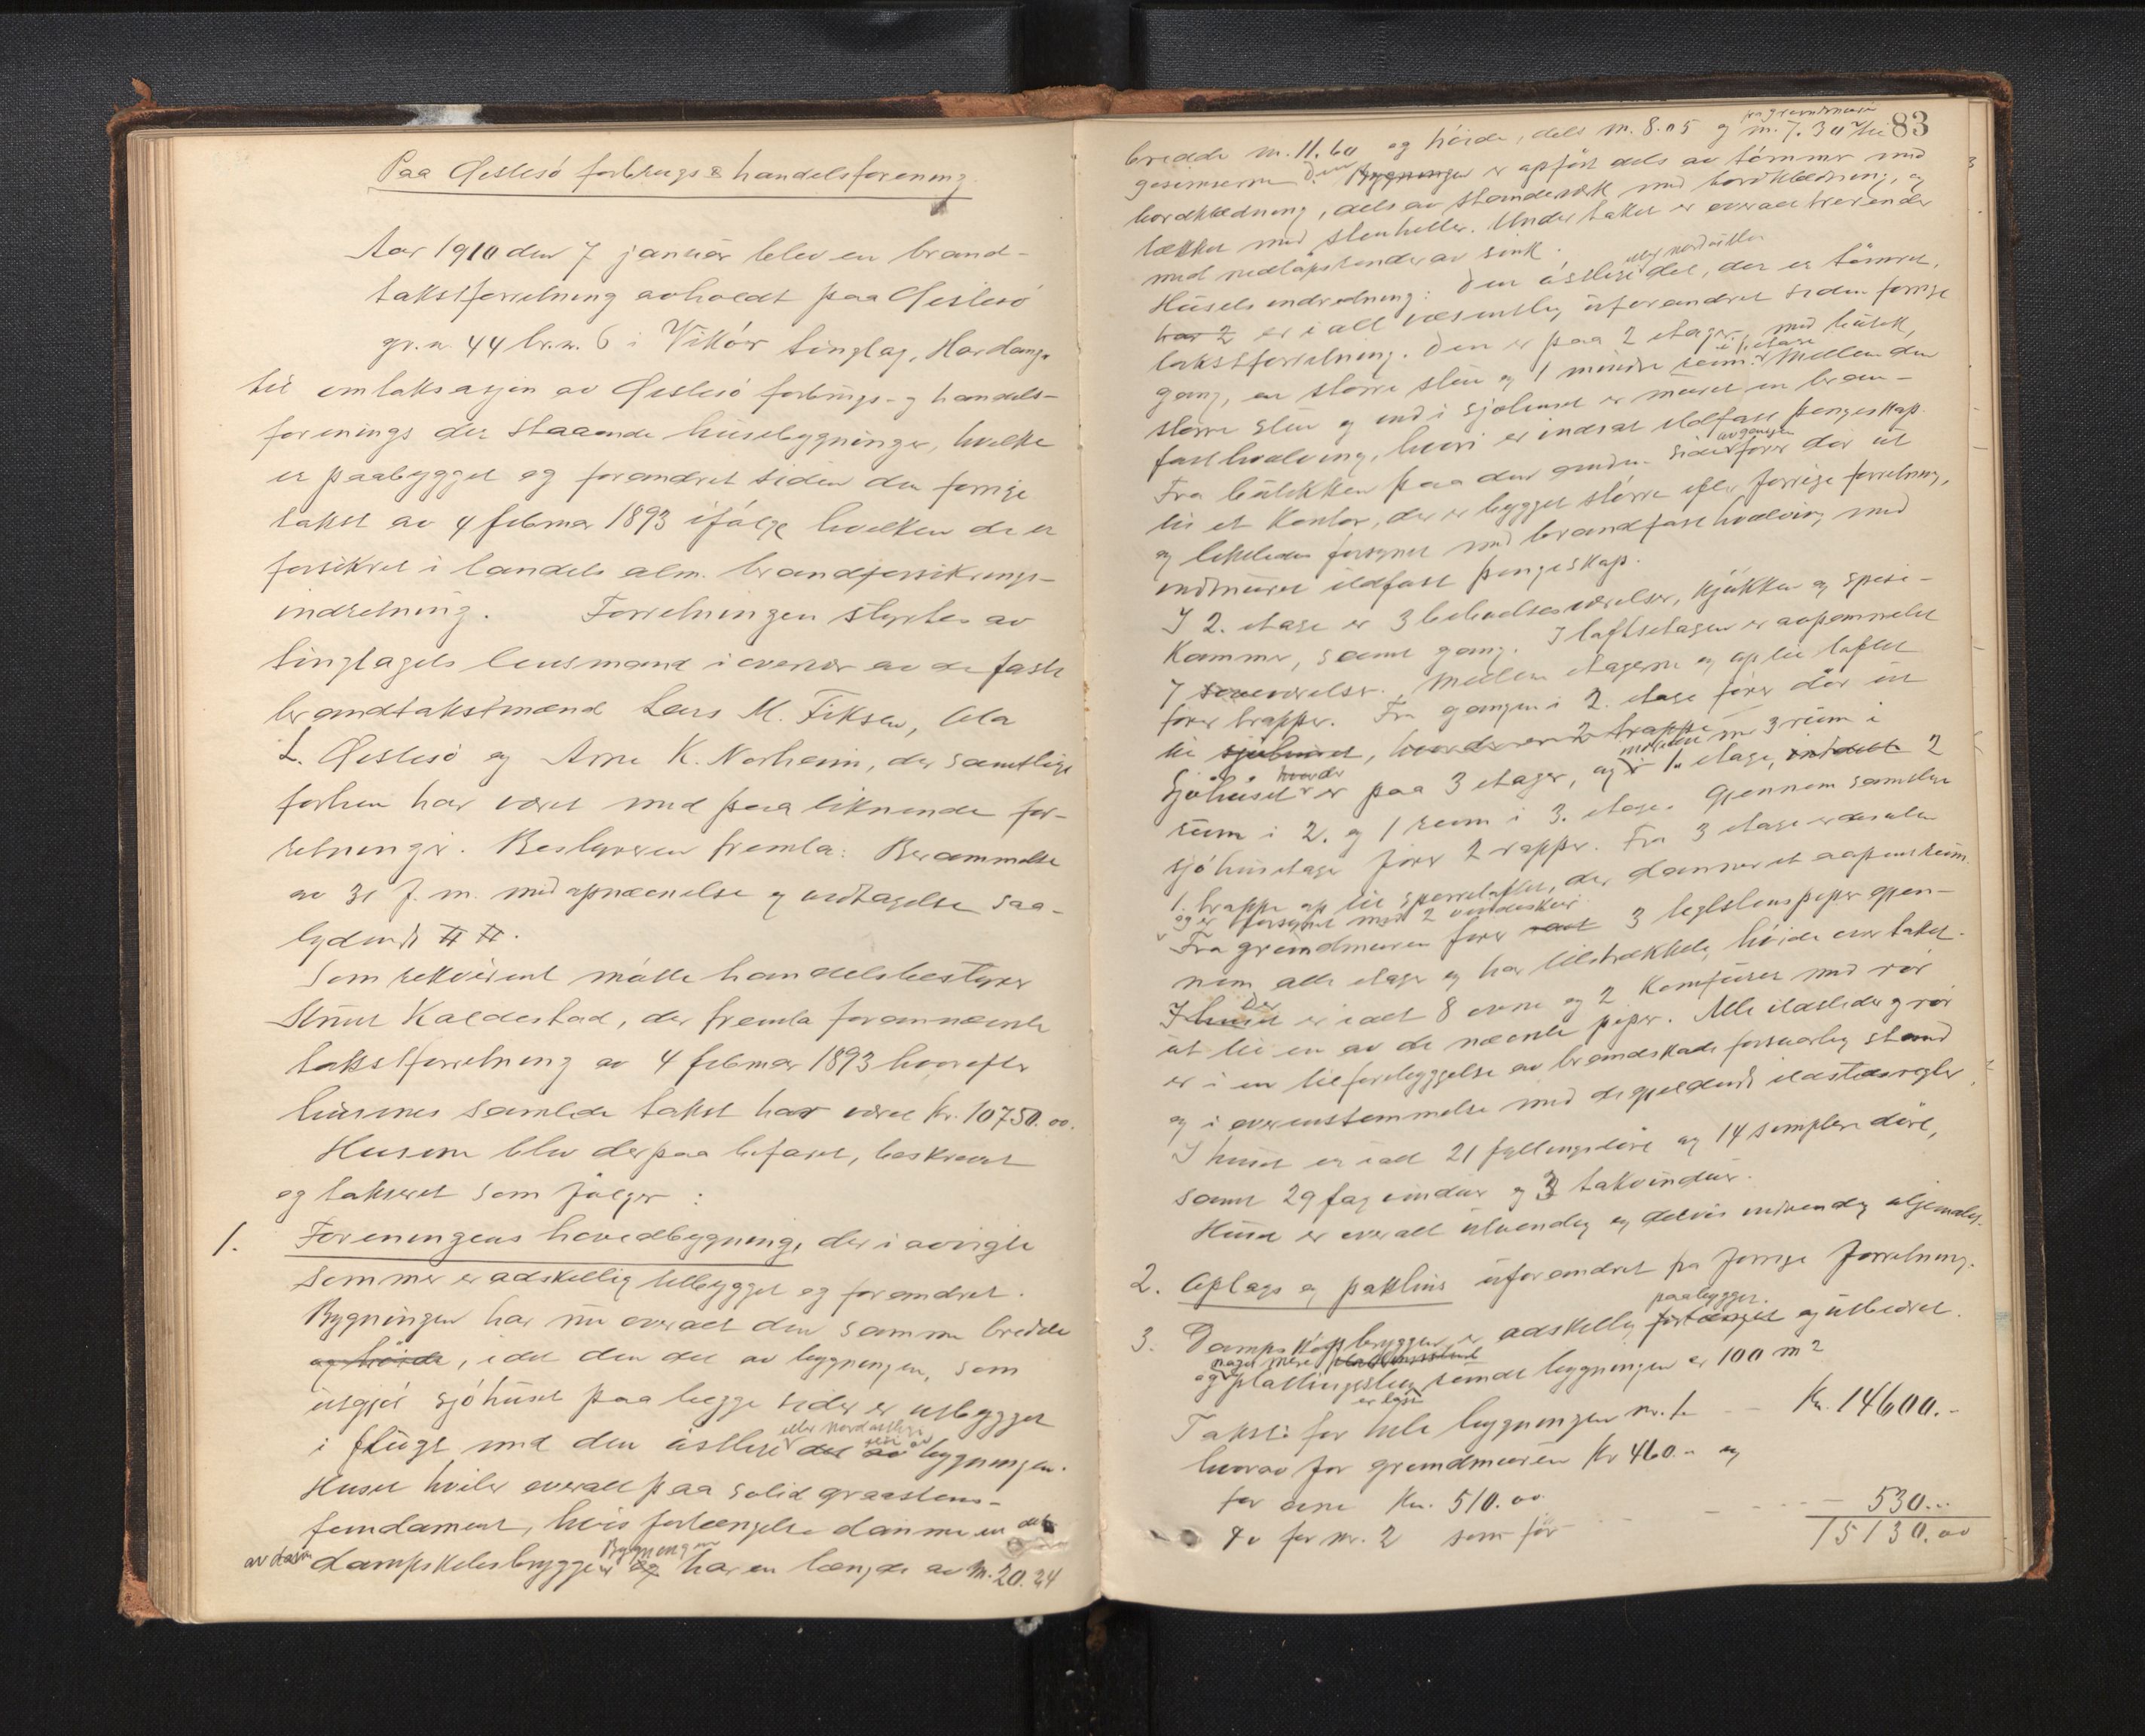 Paa Øistesö forbrugs & handelsforening
Aar 1910 den 7 januar blev en brand-
takstforretning avholdt paa Øistesö
gr.n. 44 br.n. 6 i Vikör tinglag, Hardanger
til omtaksasjon av Øistesö forbrugs- og handels-
forenings der staaende husebygninger, hvilke
er paabygget og forandret siden den forrige
takst av 4 februar 1893 ifölge hvilken de er
forsikret i landets alm. brandforsikrings-
indretning. Forretningen styrtes av
tinglagets lensmand i overvær av de faste
brandtakstmænd Lars M. Fiksen, Ola
L. Øistesö og Arne K. Norheim, der samtlige
forhen har været med paa liknende for-
retninger. Bestyreren fremla: Berammelse
av 3 f. m. med opnævnelse og vedtagelse saa-
lydende ## ##.
Som rekvirent mötte handelsbestyrer
Knut Kaldestad, der fremla forannævnte
takstforretning av 4 februar 1893 hvorefter
husenes samlede takst har været kr. 10750.00.
Husene blev derpaa befaret, beskrevet
og takseret som fölger:
1. Foreningens hovedbygning, der i avvigte
sommer er adskillig tilbygget og forandret.
Bygningen har nu overalt den samme bredde
og höide, idet den del av bygningen, som
utgjör sjöhuset paa begge sider er utbygget
eller nordöstlige
i flugt med den östlige del av bygningen.
Huset hviler overalt paa solid graastens-
fundament, hvis forlængelse danner en del
Bygningen
av dampskibsbryggen og har en længde av m. 20.24
83
fra grundmuren
bredde m. 11.60 og höide, dels m. 8.05 og m. 7.30 til
gesimserne. Den Bygningen er opfört dels av tömmer med
bordklædning, dels av standerværk med bordklædning, og
tækket med stenheller. Under taket er overalt trærender
med nedlöpsrender av sink.
eller nordöstlige
Husets indredning: Den östlige del, der er tömret,
har 2 er i alt væsentlig uforandret siden forrige
takstforretning. Den er paa 2 etager, med butik,
i 1. etage
gang, en större stue og 1 mindre rum. Mellem den
större stue og ind i sjöhuset er muret en brand-
fast hvælving, hvori er indsat ildfast pengeskap.
av gangen
Fra butikken paa den anden side förer dör ut
til et kontor, der er bygget större efter forrige forretning,
og likeledes forsynet med brandfast hvælving med
indmuret ildfast pengeskap.
I 2. etage er 3 beboelsesværelser, kjökken og spise-
kammer, samt gang. I loftsetagen er avpanelet
7 soveværelser. Mellem etagerne og op til loftet
förer trapper. Fra gangen i 2. etage förer dör ut
til sjöhuset, hvor der er 2 trapper
hvor der
Sjöhuset er paa 3 etager, og i 1. etage, 3 rum i 2
rum i 2. og 1 rum i 3. etage. Gjennem samtlige
sjöhusetager förer trapper. Fra 3 etage er desuten
1. trappe op til sperreloftet, der danner et aapent rum.
og er forsynet med 2 vindeskiver
Fra grundmuren förer 3 teglstenspiper gjen-
nem alle etager og har tilstrækkelig höide over taket.
Der
I huset er i alt 8 ovne og 2 komfurer med rör
ut til en av de nævnte piper. Alle ildsteder og rör
er i en til forebyggelse av brandskade forsvarlig stand
og i overenstemmelse med de gjældende ildstedsregler.
I huset er i alt 21 fyllingsdöre og 14 simplere döre,
samt 29 fag vinduer og 3 takvinduer.
Huset er overalt utvendig og delvis indvendig oljemalet.
2. Oplags og pakhus uforandret fra forrige forretning.
paabygget.
3. Dampskibsbryggen er adskillig forlænget og utbedret.
og plattingsdæk rundt bygningen er 100 m2
Takst: for hele bygningen nr. 1 - - Kr. 14600.-
hvorav for grundmuren kr 460.- og
for ovne Kr. 510.00
do for nr. 2 som för - - - - 530...
15130.00